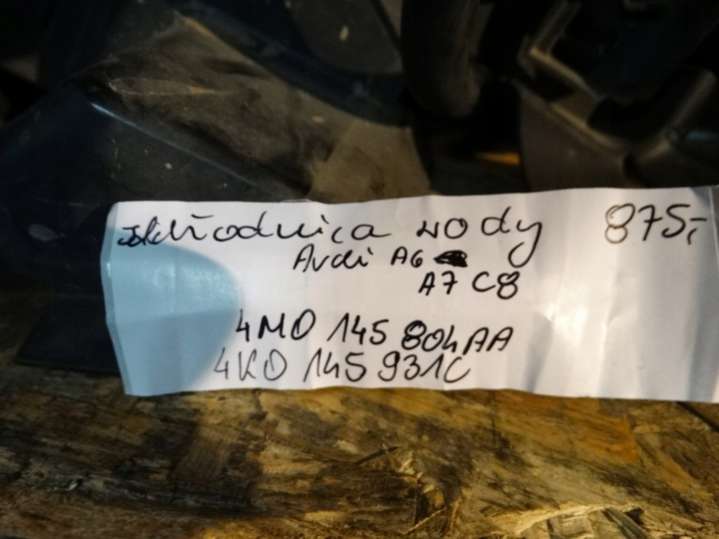 chłodnica wody 875,-
Audi A6
A7 C8
4M0 145 804AA
4K0 145 931C